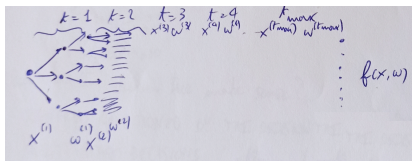 t=1 t=2 t=3 t=4 t_max
x^(3) ω^(3) x^(4) ω^(4) ... x^(t_max) ω^(t_max)
f(x,ω)
x^(1) ω^(1) x^(2) ω^(2)